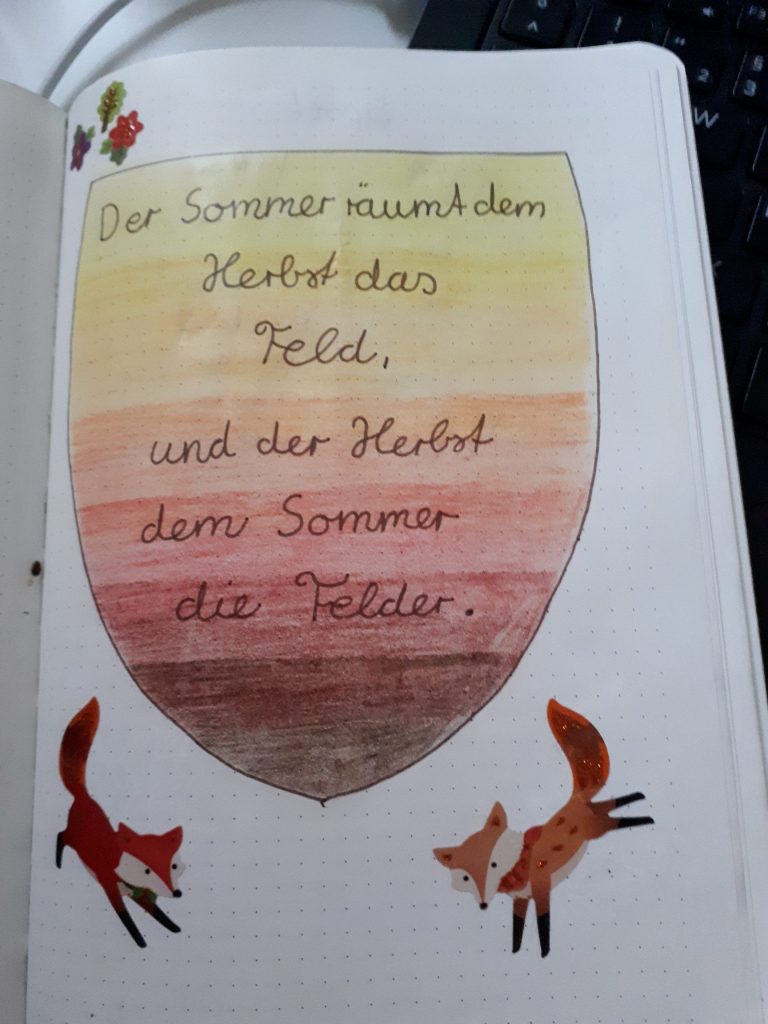 Der Sommer räumt dem
Herbst das
Feld,
und der Herbst
dem Sommer
die Felder.
W
2
3